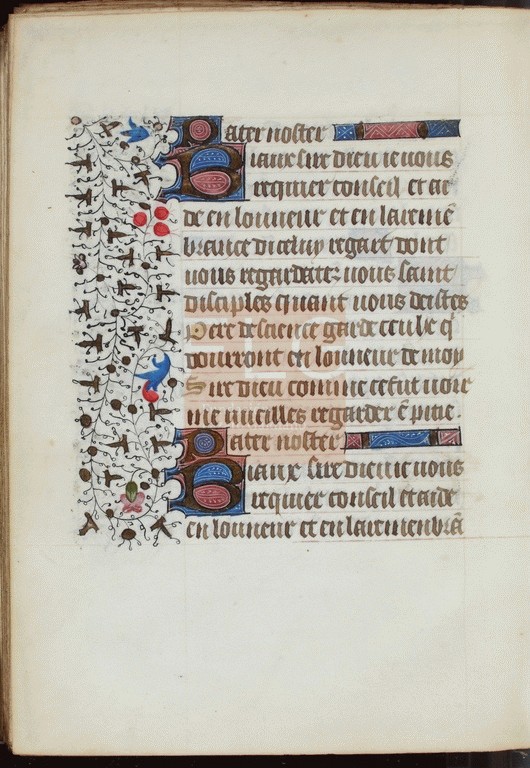 Pater noster
Biaux sire dieu ie vous
requier conseil et ai
de en lonneur et en la reme̅
brance di celuy regart dont
vous regardates vous saint
disciples quant vous deistes
pere de science garde ceulx q̅
dourront en lonneur de moy
Sire dieu comme ce fut voir
me vueilles regarder e̅ pitie .
Pater noster
Biaux sire dieu ie vous
requier conseil et aide
en lonneur et en la remenbra̅